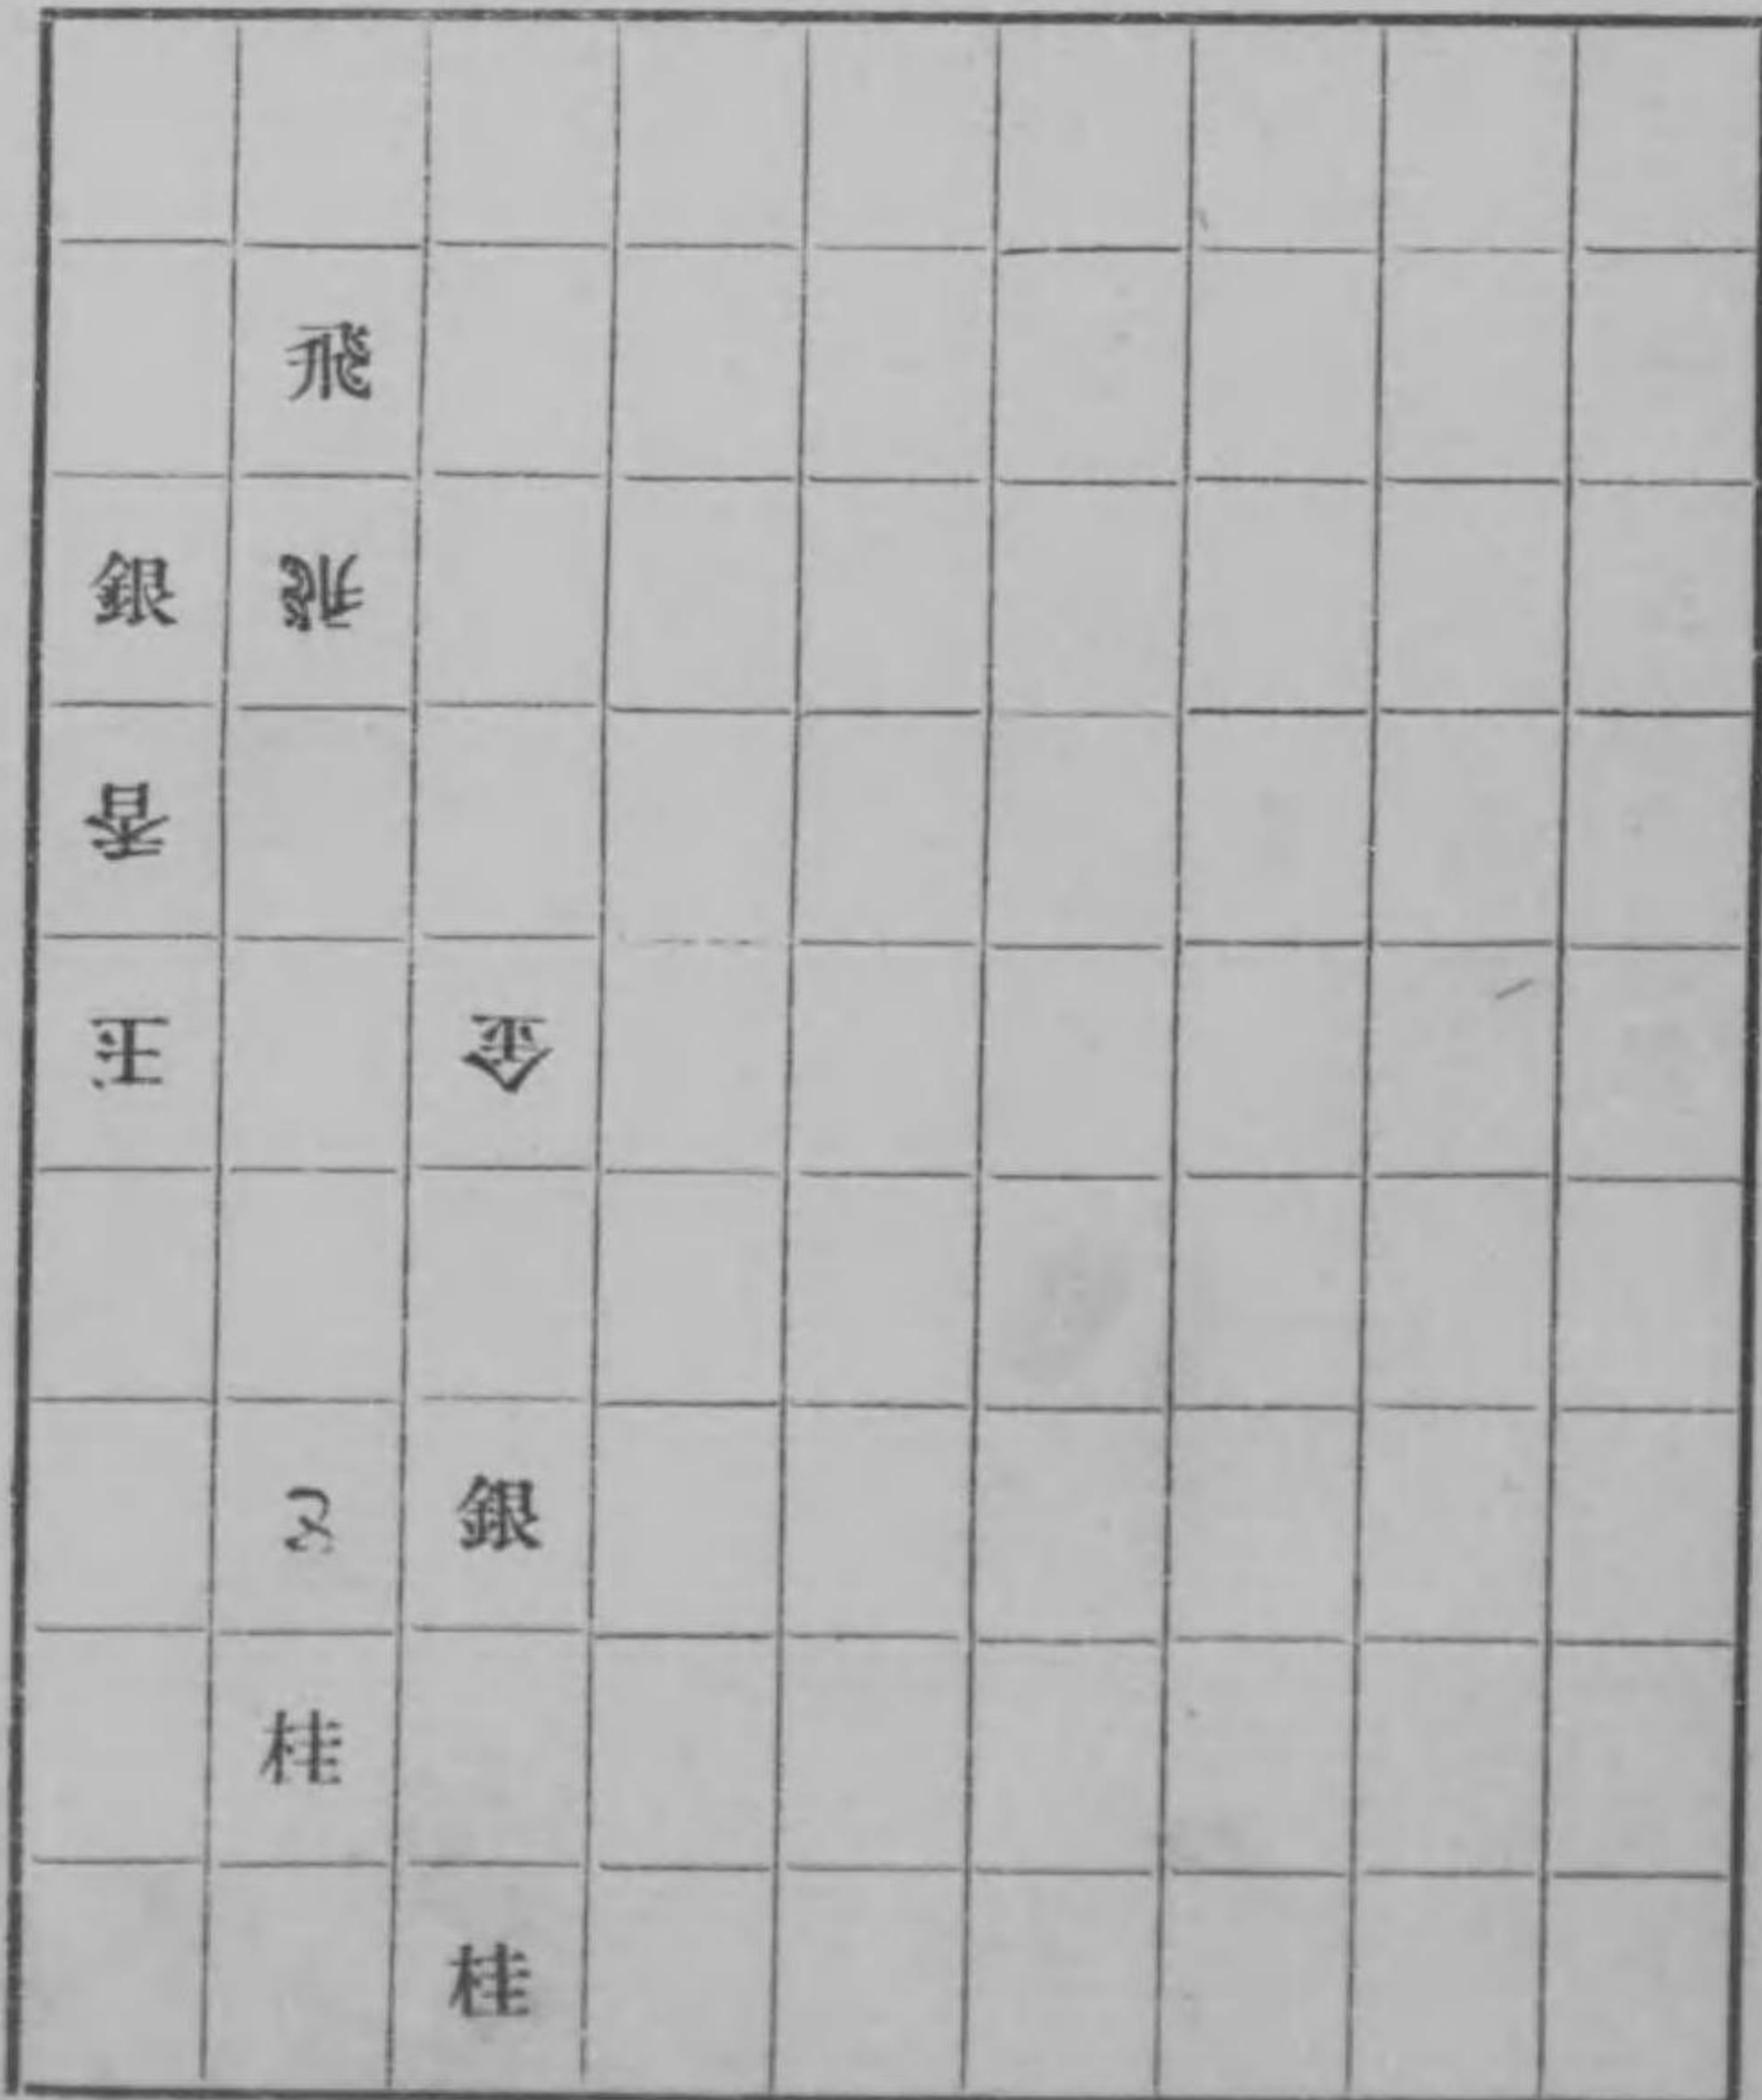 飛
銀 飛
香
玉 金
と 銀
桂
桂